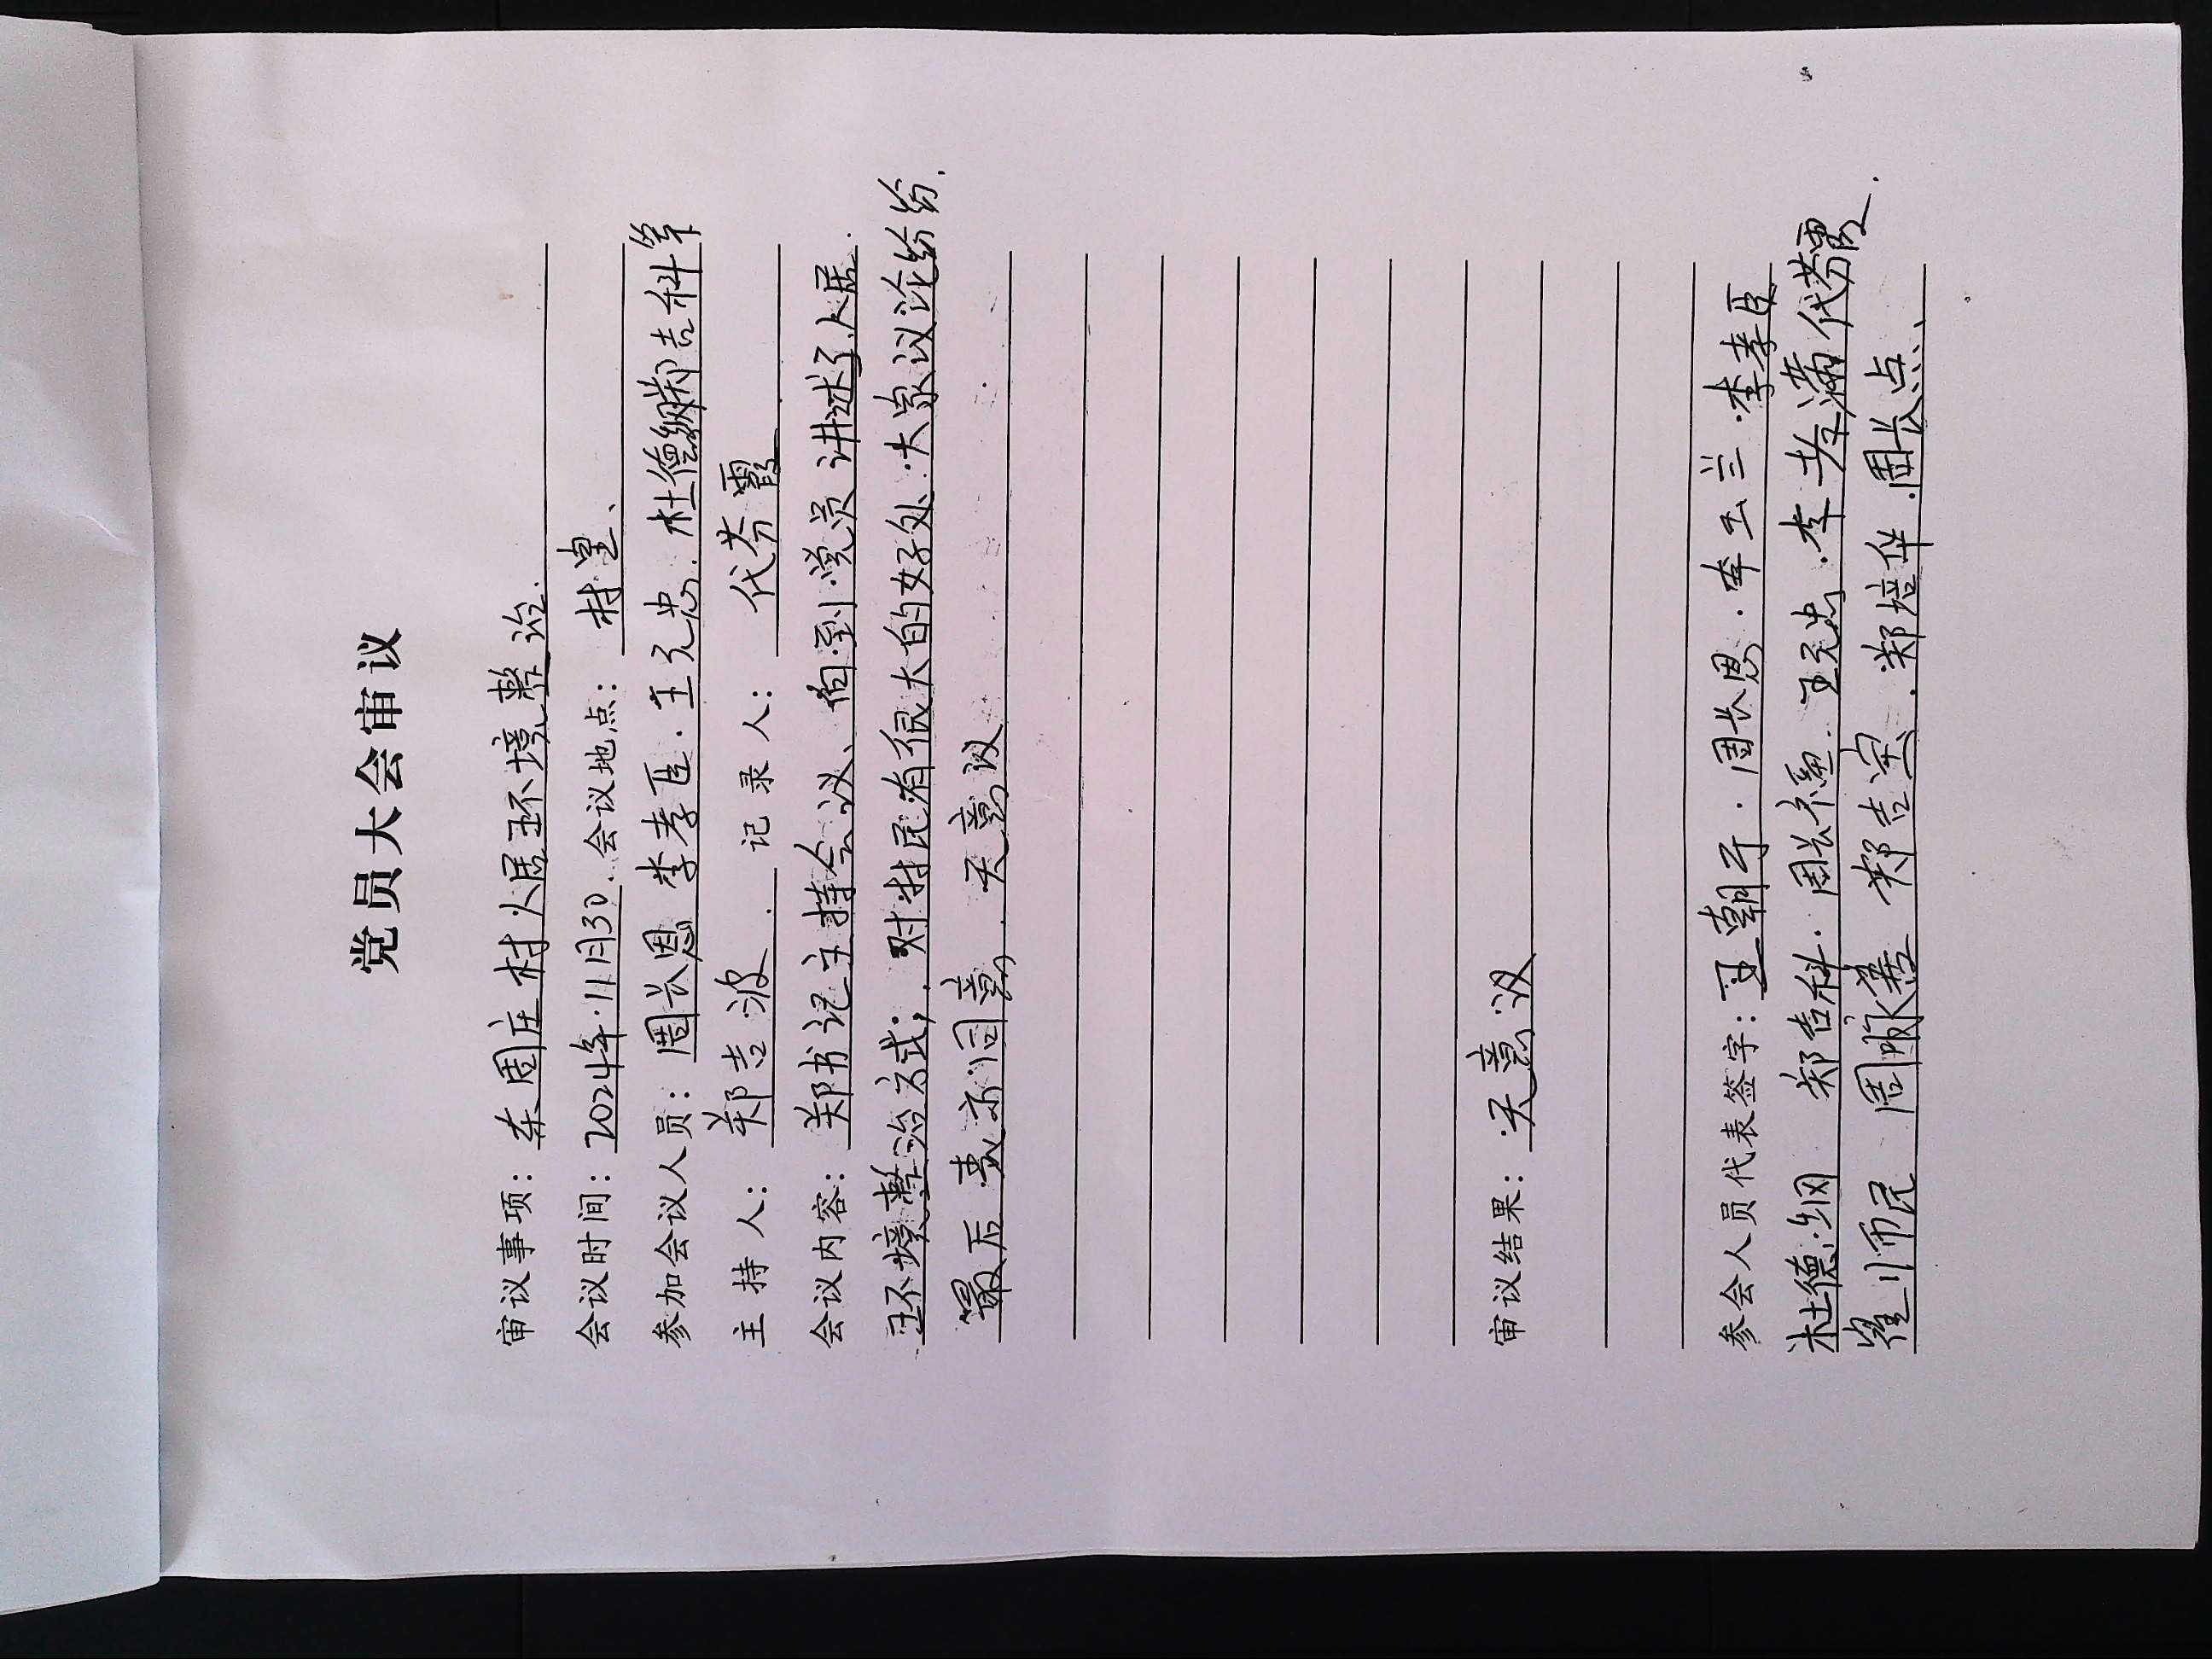 党员大会审议
审议事项：东周庄村人居环境整治.
会议时间：2024年11月30. 会议地点：村室、
参加会议人员：周长恩 李孝臣. 王元忠. 杜德纲 郑吉科等
主 持 人：郑吉波. 记 录 人：代芬霞
会议内容：郑书记主持会议、向到党员讲述了人居.
环境整治方式；对村民有很大的好处.大家议论纷纷.
最后表示同意. 无意议
审议结果：无意议
参会人员代表签字：王朝子. 周长恩. 李玉兰. 李孝臣
杜德纲 郑吉科. 周长福. 王元忠. 李孝满 代芬霞.
崔师民 周 郑吉宝. 郑培华. 周长点、